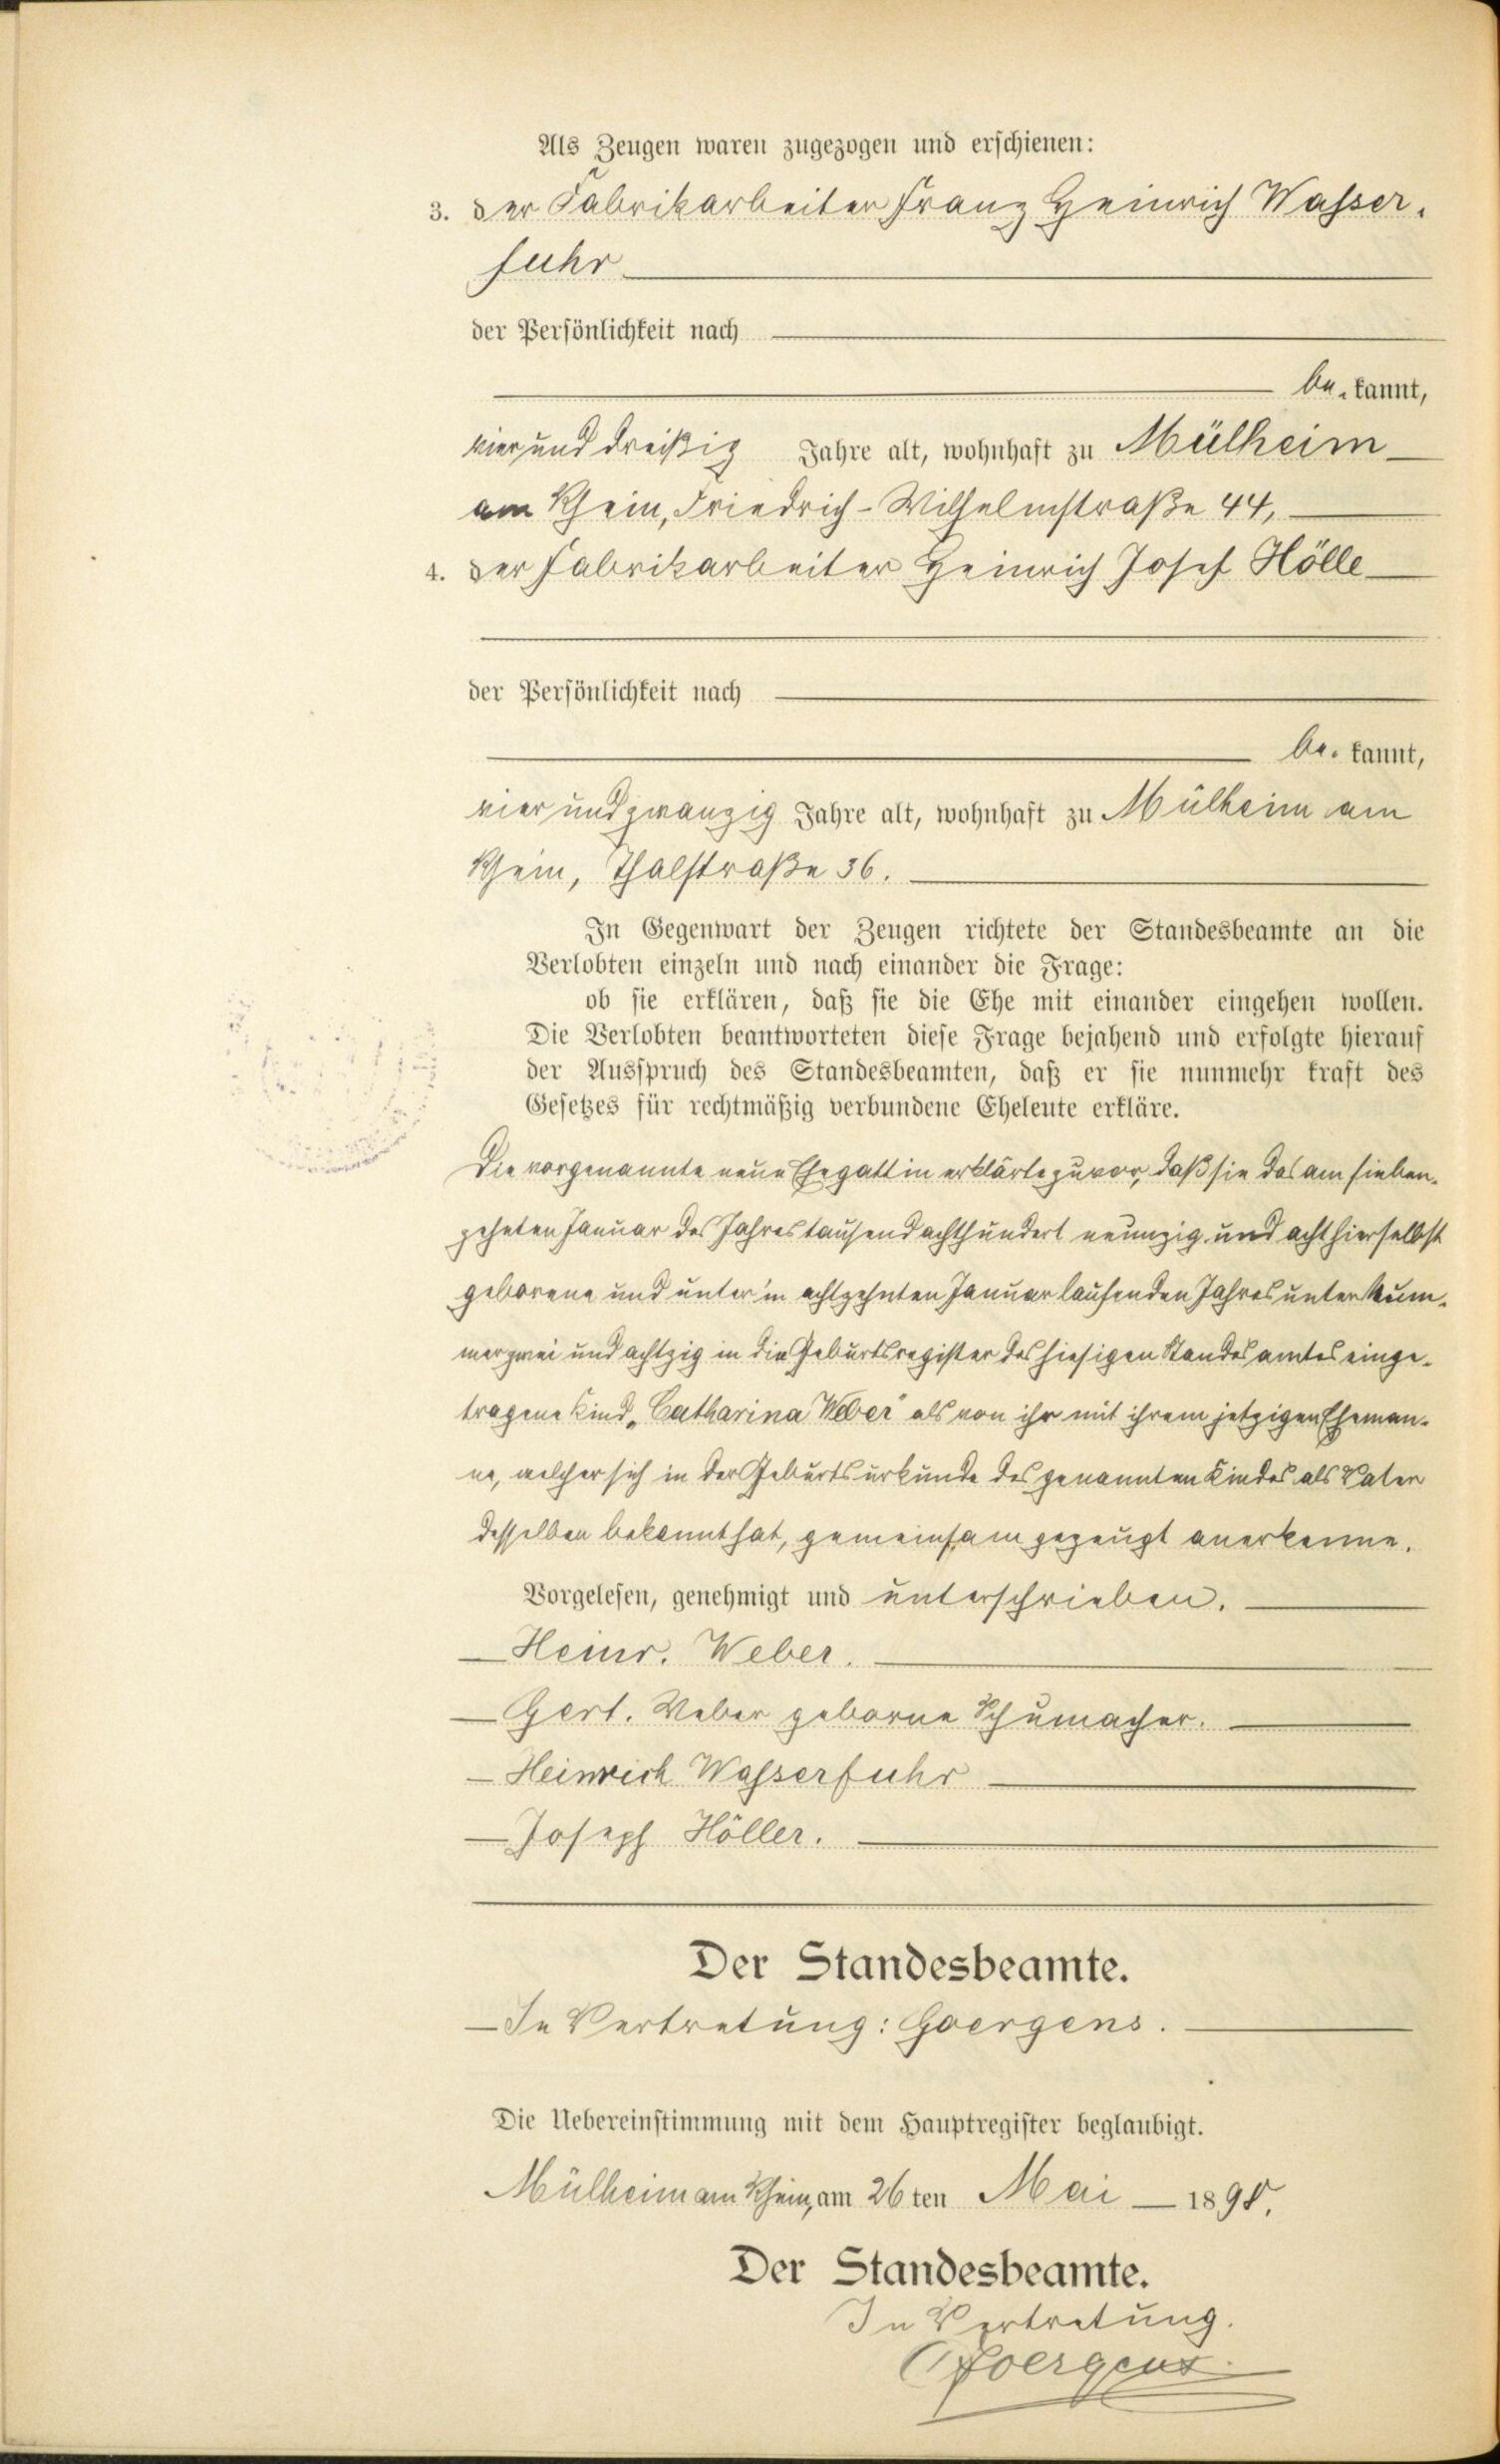 Als Zeugen waren zugezogen und erschienen:
3. der Fabrikarbeiter Franz Heinrich Wasser-
fuhr
der Persönlichkeit nach
be-kannt,
vier und dreißig Jahre alt, wohnhaft zu Mülheim
am Rhein, Friedrich-Wilhelmstraße 44,
4. der Fabrikarbeiter Heinrich Josef Hölle
der Persönlichkeit nach
be-kannt,
vier und zwanzig Jahre alt, wohnhaft zu Mülheim am
Rhein, Thalstraße 36.
In Gegenwart der Zeugen richtete der Standesbeamte an die
Verlobten einzeln und nach einander die Frage:
ob sie erklären, daß sie die Ehe mit einander eingehen wollen.
Die Verlobten beantworteten diese Frage bejahend und erfolgte hierauf
der Ausspruch des Standesbeamten, daß er sie nunmehr kraft des
Gesetzes für rechtmäßig verbundene Eheleute erkläre.
Die vorgenannte neue Ehegattin erklärte zuvor, daß sie das am sieben-
zehnten Januar des Jahres tausend achthundert neunzig und acht hierselbst
geborene und unter'm achtzehnten Januar laufenden Jahres unter Num-
mer zwei und achtzig in die Geburtsregister des hiesigen Standesamtes einge-
tragene Kind „Catharina Weber" als von ihr mit ihrem jetzigen Eheman-
ne, welcher sich in der Geburtsurkunde des genannten Kindes als Vater
desselben bekannt hat, gemeinsam gezeugt anerkenne.
Vorgelesen, genehmigt und unterschrieben.
Heinr. Weber.
Gert. Weber geborne Schumacher.
Heinrich Wasserfuhr
Joseph Höller.
Der Standesbeamte.
In Vertretung: Goergens.
Die Uebereinstimmung mit dem Hauptregister beglaubigt.
Mülheim am Rhein, am 26ten Mai 1898.
Der Standesbeamte.
In Vertretung.
Goergens.